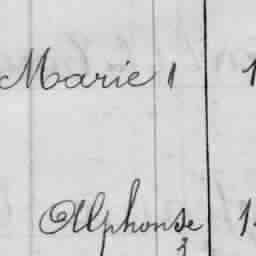 Marie 1 1
Alphonse 1
3